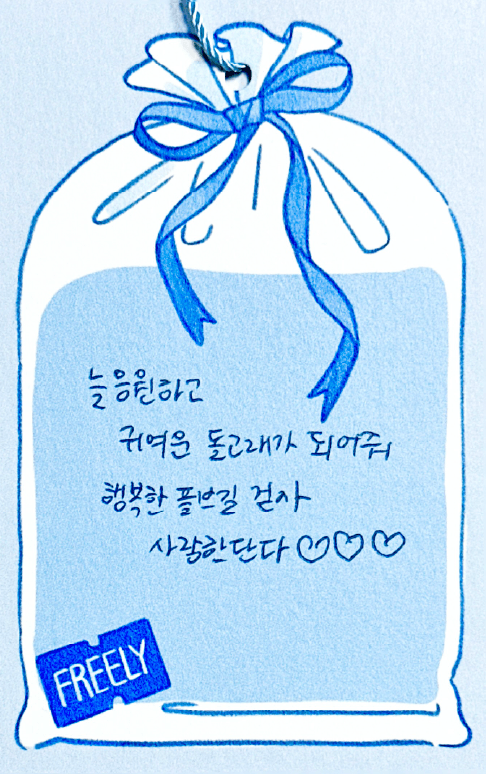 늘 응원하고
귀여운 돌고래가 되어줘
행복한 플브길 걷자
사랑한단다 ♡♡♡
FREELY